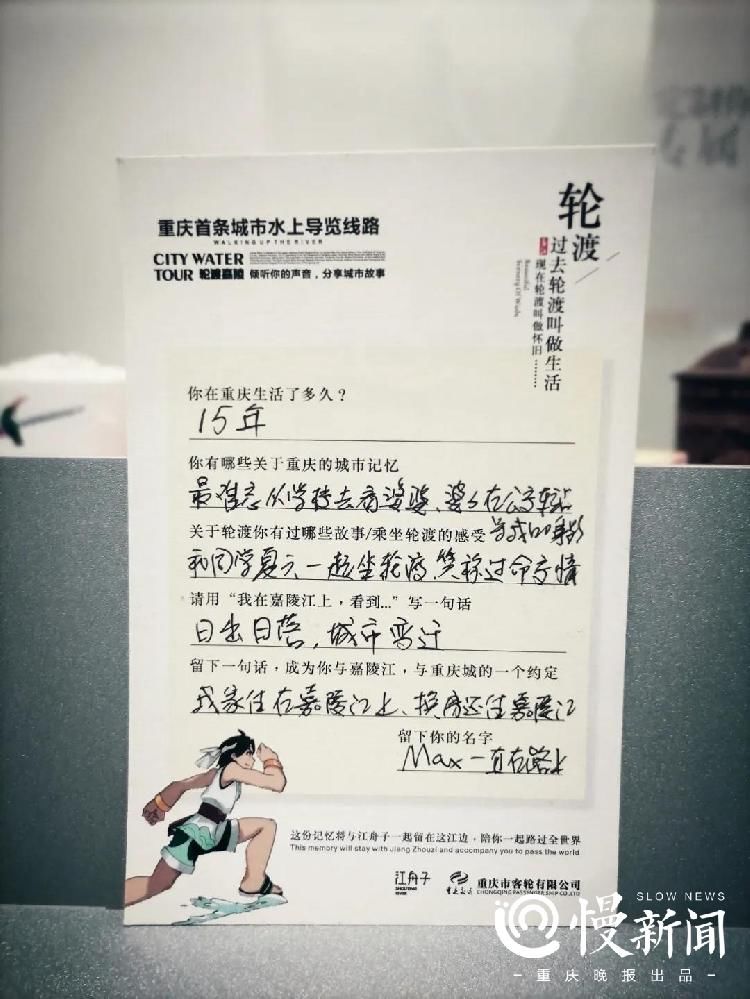 重庆首条城市水上导览线路
WALKING UP THE RIVER
CITY WATER
TOUR 轮渡嘉陵 倾听你的声音，分享城市故事
轮渡
过去轮渡叫做生活
现在轮渡叫做怀旧……
Beautiful
Scenery Of Wushu
你在重庆生活了多久？
15年
你有哪些关于重庆的城市记忆
最难忘从学校去看婆婆、婆婆在公交车站
等我的身影
关于轮渡你有过哪些故事/乘坐轮渡的感受
和同学夏天一起坐轮渡，笑称过命交情
请用“我在嘉陵江上，看到...”写一句话
日出日落，城市变迁
留下一句话，成为你与嘉陵江，与重庆城的一个约定
我家住在嘉陵江上、换房还住嘉陵江
留下你的名字
Max一直在路上
这份记忆将与江舟子一起留在这江边，陪你一起路过全世界
This memory will stay with Jiang Zhouzi and accompany you to pass the world
江舟子
重庆市客轮有限公司
CHONGQING PASSENGER SHIP CO.,LTD
SLOW NEWS
慢新闻
-重庆晚报出品-